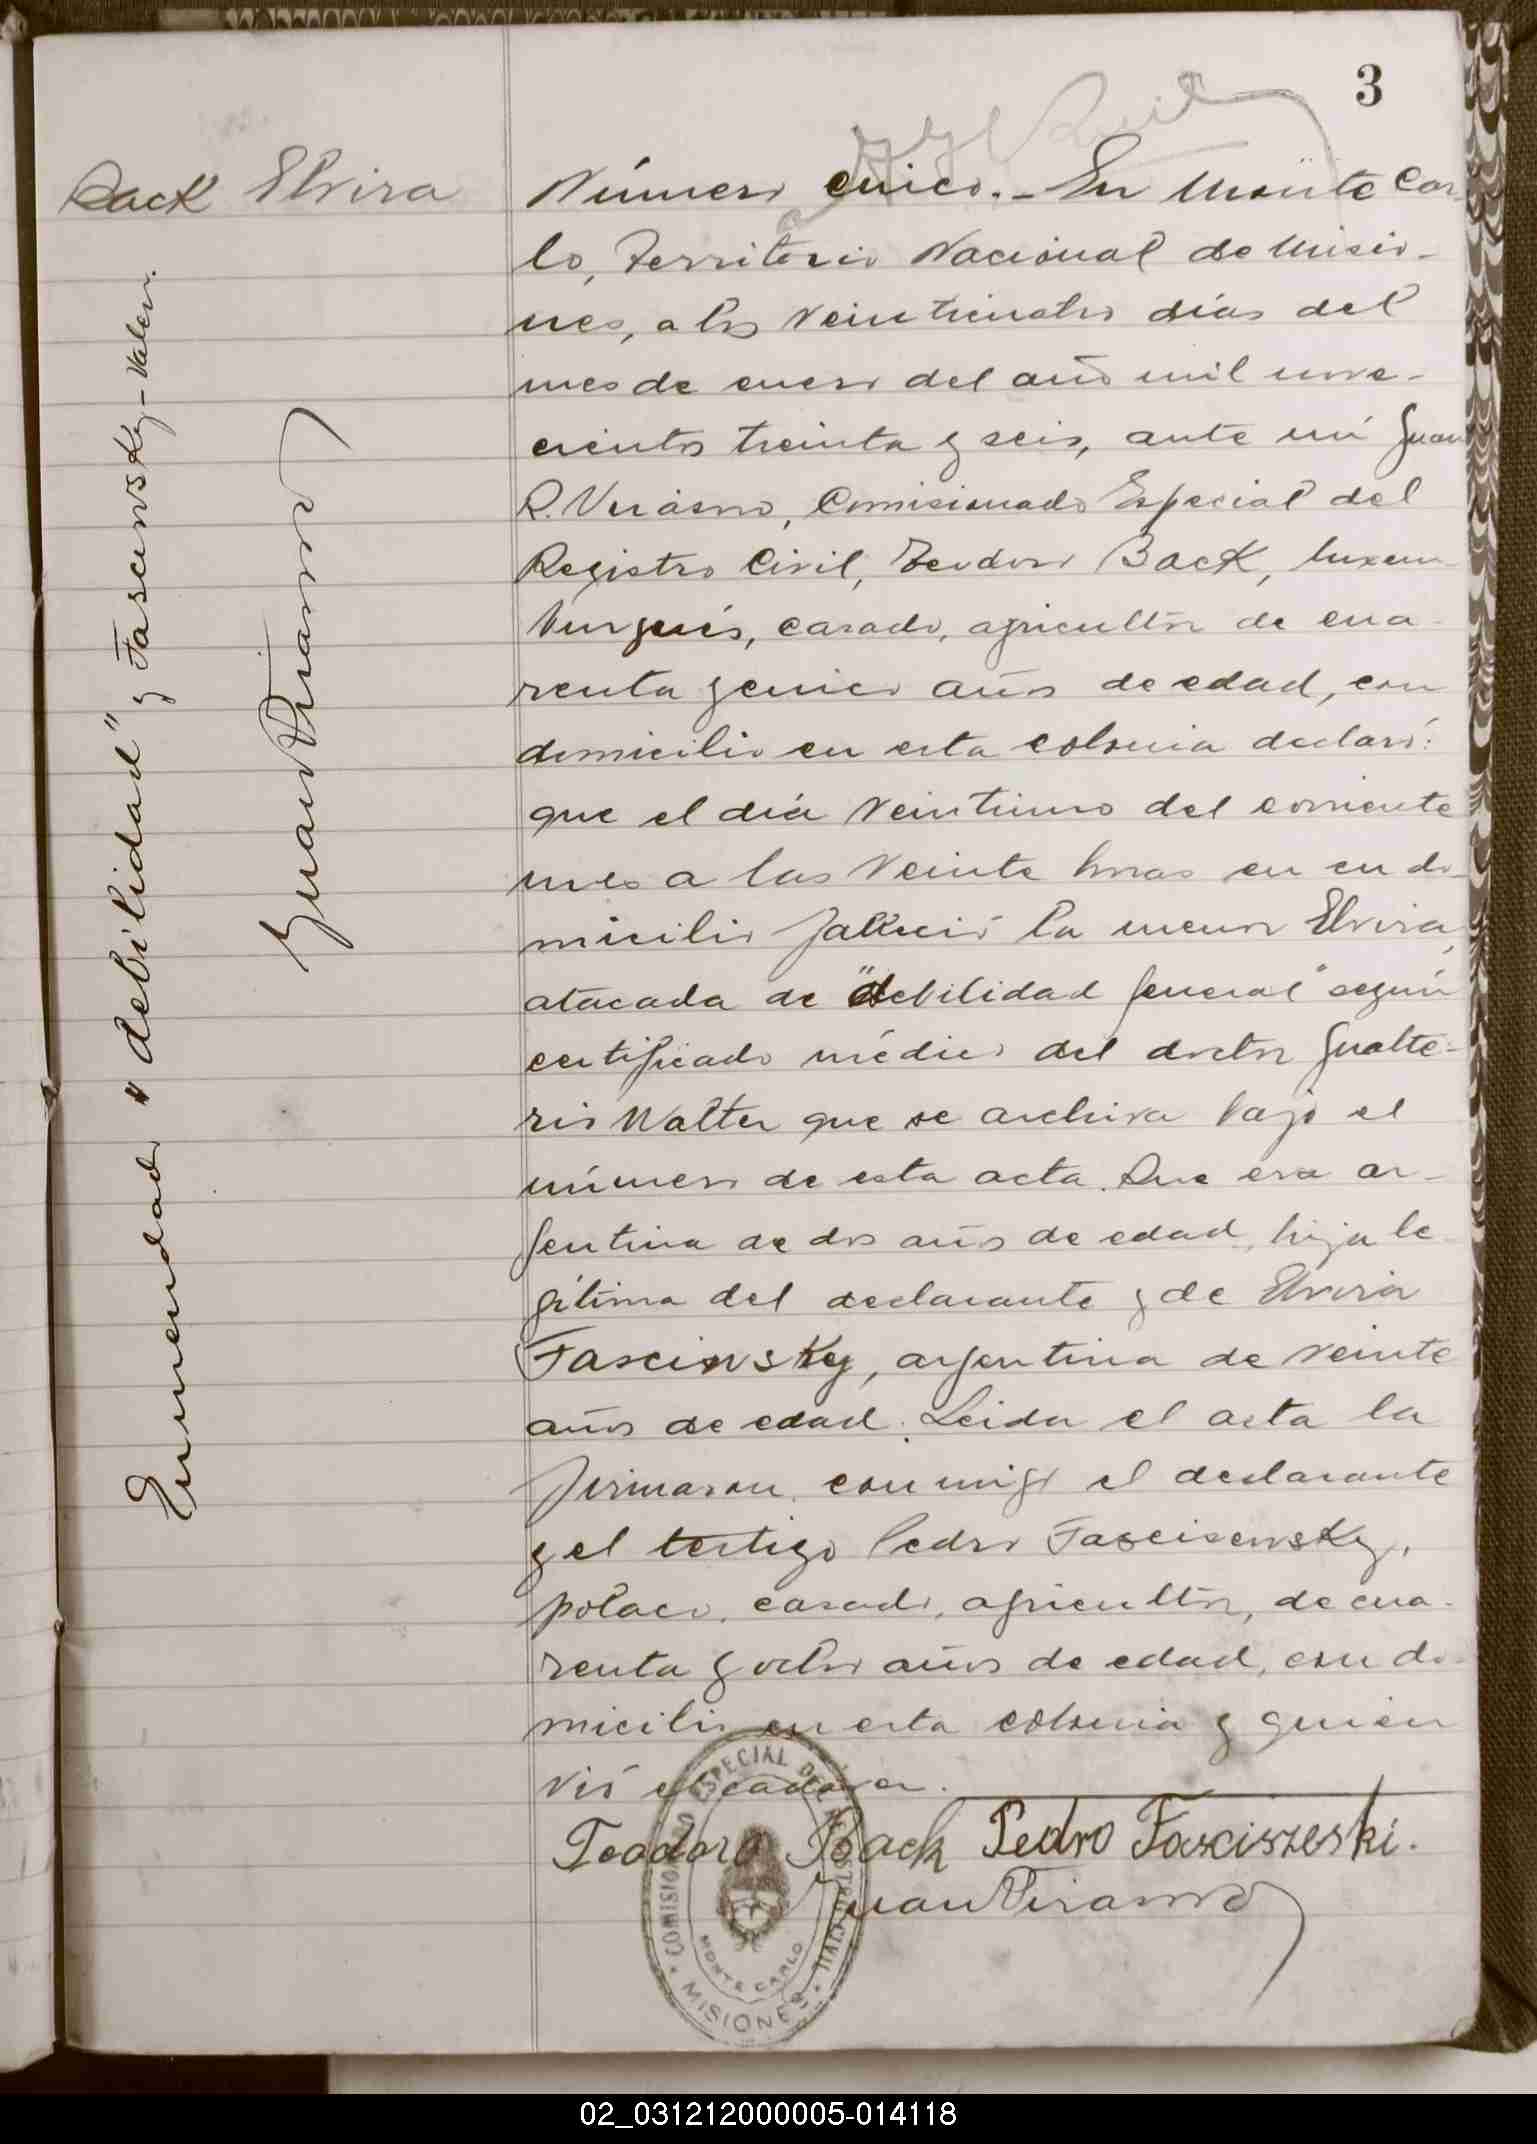 3
Back Elvira
Número cinco.- En Monte Car-
lo, Territorio Nacional de Misio-
nes, a los veinticuatro días del
mes de enero del año mil nove-
cientos treinta y seis, ante mí Juan
R. Verasno, Comisionado Especial del
Registro Civil, Teodoro Back, luxem-
burgués, casado, agricultor de cua-
renta y cinco años de edad, con
domicilio en esta colonia declaró:
que el día veintiuno del corriente
mes a las veinte horas en su do-
micilio falleció la menor Elvira,
atacada de "debilidad general" según
certificado médico del doctor Gualte-
rio Walter que se archiva bajo el
número de esta acta. Que era ar-
gentina de dos años de edad, hija le-
gítima del declarante y de Elvira
Fascinsky, argentina de veinte
años de edad. Leida el acta la
firmaron conmigo el declarante
y el testigo Pedro Fascisensky,
polaco, casado, agricultor, de cua-
renta y ocho años de edad, con do-
micilio en esta colonia y quien
vió el cadaver.
Teodoro Back Pedro Fasciszeski.
Enmendado "debilidad" y Fascensky-Valen.
COMISIONADO ESPECIAL DEL REGISTRO CIVIL
MONTE CARLO
MISIONES
02_031212000005-014118